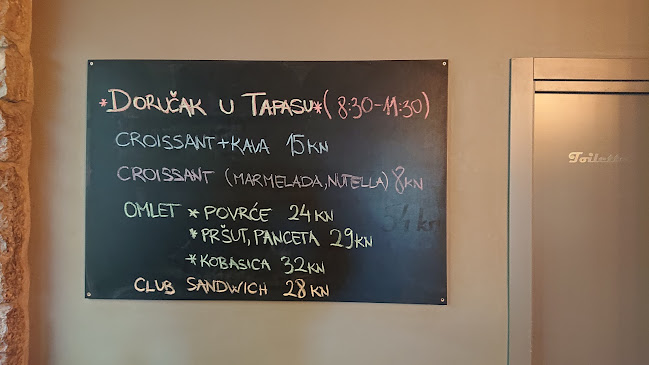 *DORUČAK U TAPASU* (8:30-11:30)
CROISSANT+KAVA 15KN
CROISSANT (MARMELADA, NUTELLA) 8KN
OMLET * POVRĆE 24KN
* PRŠUT, PANCETA 29KN
* KOBASICA 32KN
CLUB SANDWICH 28KN
34 kn